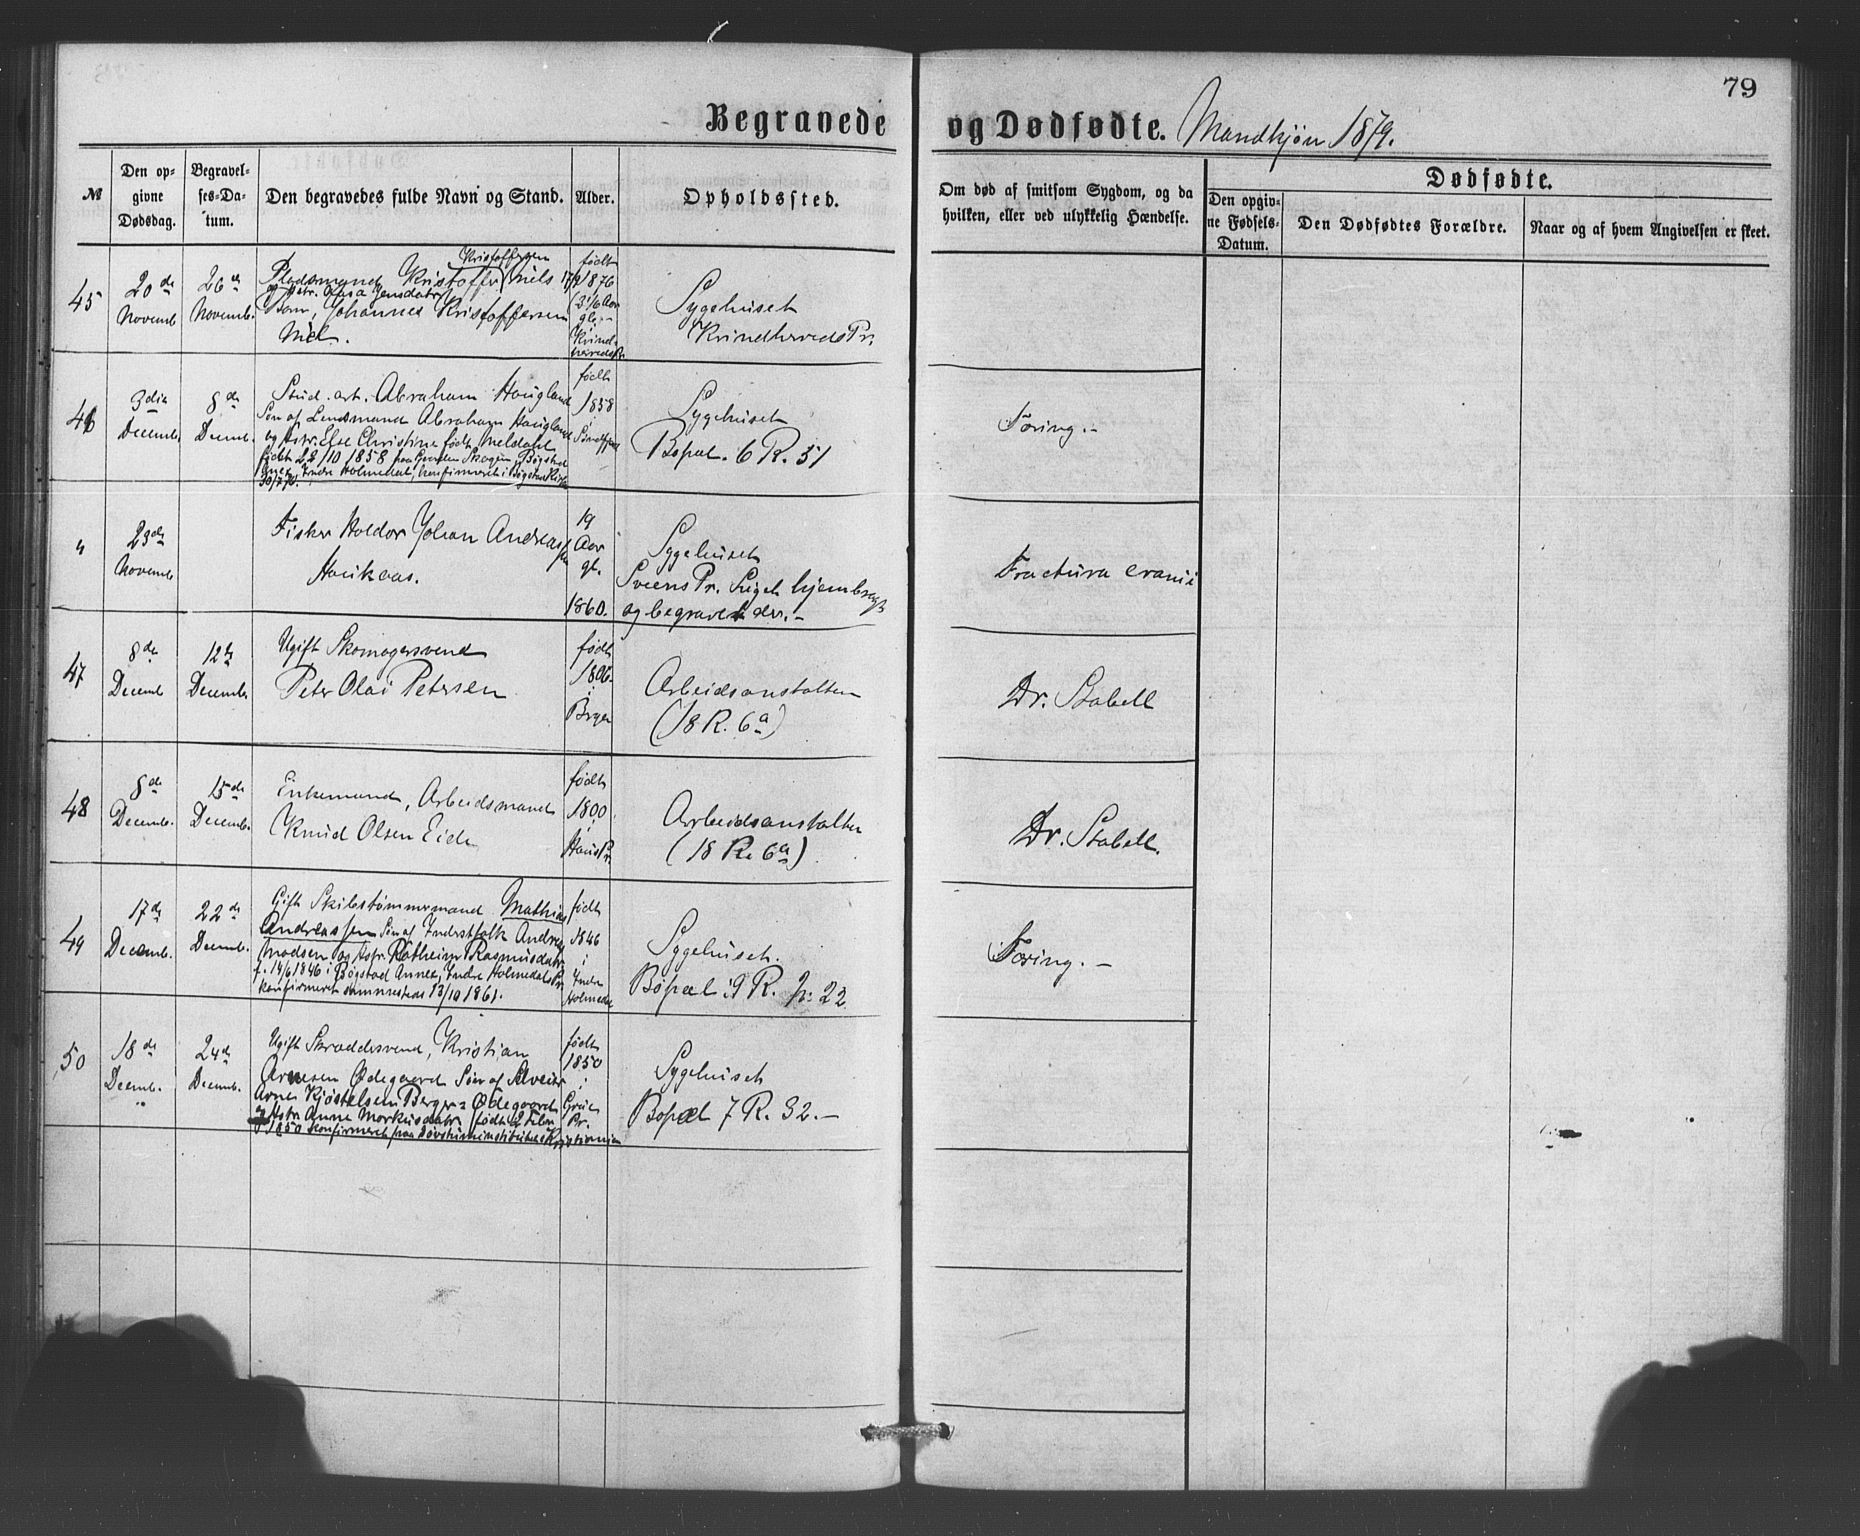 79
Begravede og Dødfødte. Mandkjøn 1879.
№
Den opgivne Dødsdag.
Begravelses-Datum.
Den begravedes fulde Navn og Stand.
Alder.
Opholdssted.
Om død af smitsom Sygdom, og da hvilken, eller ved ulykkelig Hændelse.
Dødfødte.
Den opgivne Fødsels-Datum.
Den Dødfødtes Forældre.
Naar og af hvem Angivelsen er skeet.
45
20de
Novemb
26de
Novemb.
Kristoffersen
Pladsmand Kristoffer Niels
Jensdatr
Barn, Johannes Kristoffersen
Niel.
født
1876
Kvindherreds Pr.
Sygehuset
Kvindherreds Pr.
46
3die
Decemb.
8de
Decemb.
Stud. art. Abraham Haugland
Søn af Lensmand Abraham Haugland
og Hstr. Else Christine født Meldahl
født 22/10 1858 paa Gaarden Skogen, Bøgstad
Anex, Indre Holmedal, konfirmeret i Bøgstad Kirke
født
1858
Søndfjord
Sygehuset
Bopæl. 6 R. 31
Tæring.-
"
23de
Novemb
Fisker Haldor Johan Andreassen
Haukaas.
19
Aar
gl.
1860.
Sygehuset
Sveens Pr. Liget hjembragt
og begravet der.-
Fractura cranii
47
8de
Decemb
12te
Decemb
Ugift Skomagersvend
Peter Olai Petersen
født
1806.
i
Bergen
Arbeidsanstalten
(18 R. 6a)
Dr. Stabell
48
8de
Decemb.
15de
Decemb.
Enkemand, Arbeidsmand
Knud Olsen Eide
født
1800
i
Haus Pr.
Arbeidsanstalten
(18 R. 6a).
Dr. Stabell.
49
17de
Decemb.
22de
Decemb.
Gift Skibstømmermand Mathias
Andreassen Søn af Inderstfolk Andreas
Madsen og Hstr. Rasmusdatr
f. 14/6 1846 i Bøgstad Annex, Indre Holmedals Pr.
konfirmeret sammesteds 13/10 1861.
født
1846
i
Indre
Holmedal
Sygehuset.
Bopæl 9 R. № 22
Tæring.-
50
18de
Decemb.
24de
Decemb.
Ugift Skræddersvend, Kristian
Arnesen Ødegaard Søn af Selveier
Arne Kjøstelsen Berger = Ødegaard
og Hstr. Anne Markusdatr født 2 Febr
1850 konfirmeret paa Døvstummeinstitutet i Kristiania
født
1850
i
Grue
Pr.
Sygehuset
Bopæl 7 R. 32.-